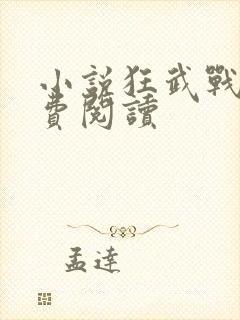 小說狂武戰
費閱讀
孟達